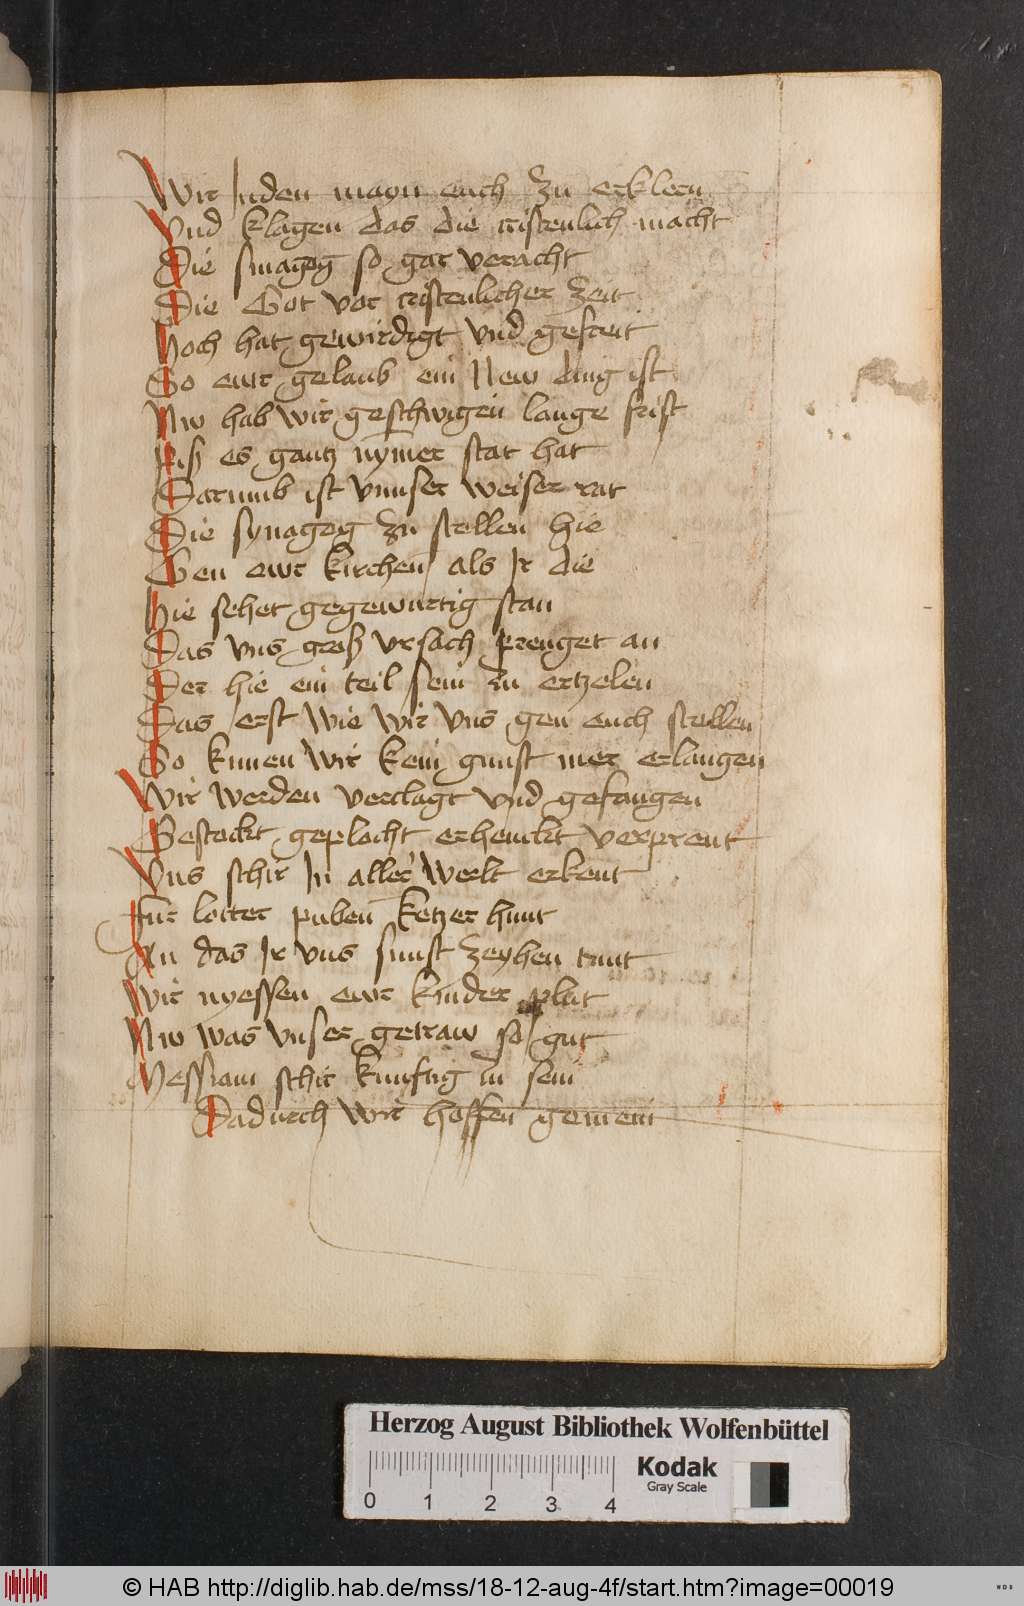 Wir Juden mayn euch zu erklern
Vnd klagen das die cristenlich macht
Die sinagog so gar veracht
Die Got vor cristenlicher zeit
Hoch hat gewirdigt vnd gefreit
So ewr gelaub ein New ding ist
Nw hab wir geschwigen lange frist
Piß es gantz nymer stat hat
Darumb ist vnnser weiser rat
Die synagog zu stellen hie
Gen ewr kirchen als Ir die
Hie sehet gegewurtig stan
Das vns groß vrsach prenget an
Der hie ein teil sein zu ertzelen
Das erst wie wir vns gen euch stellen
So kunen wir kein gunst mer erlangen
Wir werden verclagt vnd gefangen
Gestockt geplocht erhenckt verprent
Vns schir In aller werlt erkent
Fur lotter puben ketzer hunt
An das Ir vns sunst zeyhen tunt
Wir nyessen ewr kinder plut
Nw was vnser getraw so gut
Messiam schir kunftig zu sein
Dadurch wir hoffen gemein
Herzog August Bibliothek Wolfenbüttel
Kodak
Gray Scale
0 1 2 3 4
© HAB http://diglib.hab.de/mss/18-12-aug-4f/start.htm?image=00019